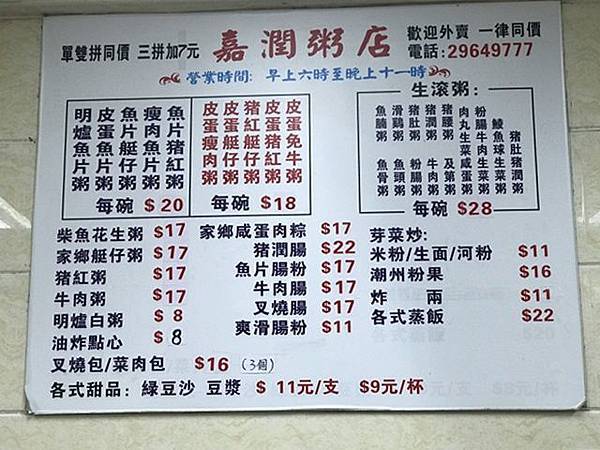 單雙拼同價 三拼加7元
嘉潤粥店
歡迎外賣 一律同價
電話:29649777
營業時間: 早上六時至晚上十一時
明爐魚片粥
皮蛋魚片粥
魚片艇仔粥
瘦肉魚片粥
魚片豬紅粥
每碗 $20
皮蛋瘦肉粥
皮蛋艇仔粥
豬紅艇仔粥
皮蛋豬紅粥
皮蛋免牛粥
每碗 $18
生滾粥:
魚腩粥
滑鷄粥
豬肚粥
豬潤粥
豬腰粥
肉丸粥
粉腸粥
魚骨粥
魚頭粥
粉腸粥
牛肉粥
及第粥
每碗 $28
柴魚花生粥 $17
家鄉艇仔粥 $17
豬紅粥 $17
牛肉粥 $17
明爐白粥 $8
油炸點心 $8
家鄉咸蛋肉粽 $17
豬潤腸 $22
魚片腸粉 $17
牛肉腸 $17
叉燒腸 $17
爽滑腸粉 $11
芽菜炒:
米粉/生面/河粉 $11
潮州粉果 $16
炸 兩 $11
各式蒸飯 $22
叉燒包/菜肉包 $16 (3個)
各式甜品: 綠豆沙 豆漿 $ 11元/支 $9元/杯